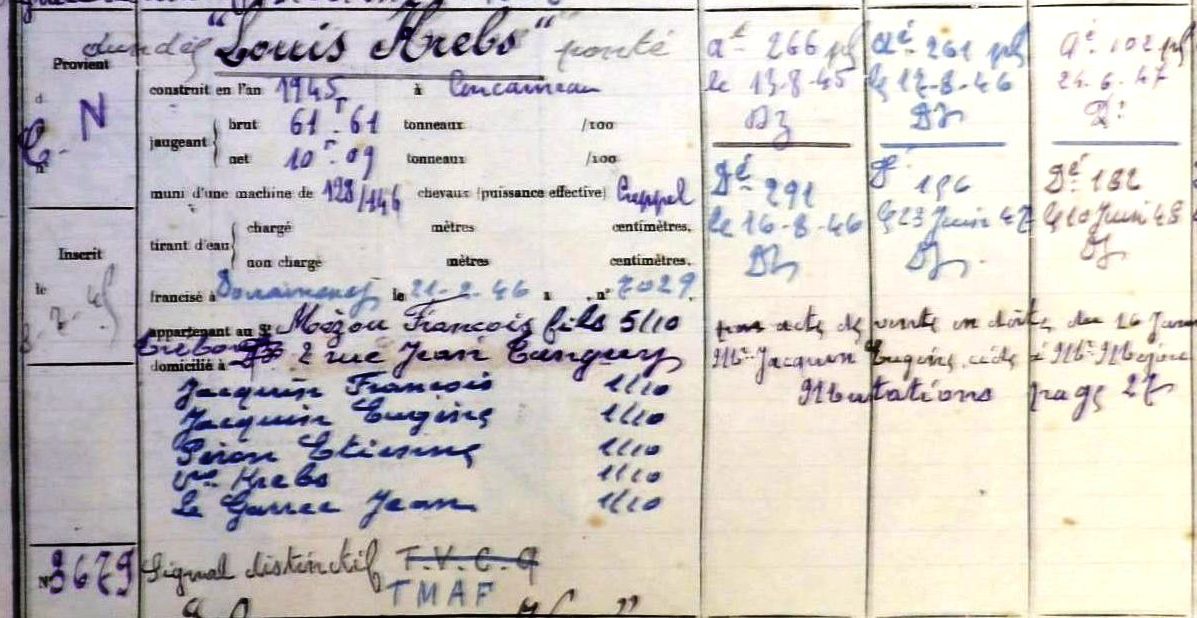 Provient
N
C.
n°
Inscrit
le
N° 3679
dundée "Louis Krebs" ponté
construit en l'an 1945 à Concarneau
jaugeant
brut 61T.61 tonneaux /100
net 10T.09 tonneaux /100
muni d'une machine de 128/146 chevaux (puissance effective) Creppel
tirant d'eau
chargé mètres centimètres.
non chargé mètres centimètres.
francisé à Douarnenez le 21-2-46 n° 7029
appartenant au Sr Mézou François fils 5/10
domicilié à Tréboul 2 rue Jean Tanguy
Jacquin François 1/10
Jacquin Eugène 1/10
Etienne 1/10
Vve Krebs 1/10
Le Garrec Jean 1/10
Signal distinctif T.V.C.Q
TMAF
At 266 pl
le 13-8-45
Dz
Dé 291
le 16-8-46
Dz
At 261 pl
le 12-8-46
Dz
196
le 23 Juin 47
Dz
At 102 pl
24.6.47
Dz
Dé 182
le 10 Juin 48
Dz
par acte de vente en date du 16
Mr Jacquin Eugène cède à Mr
Mutations page 27